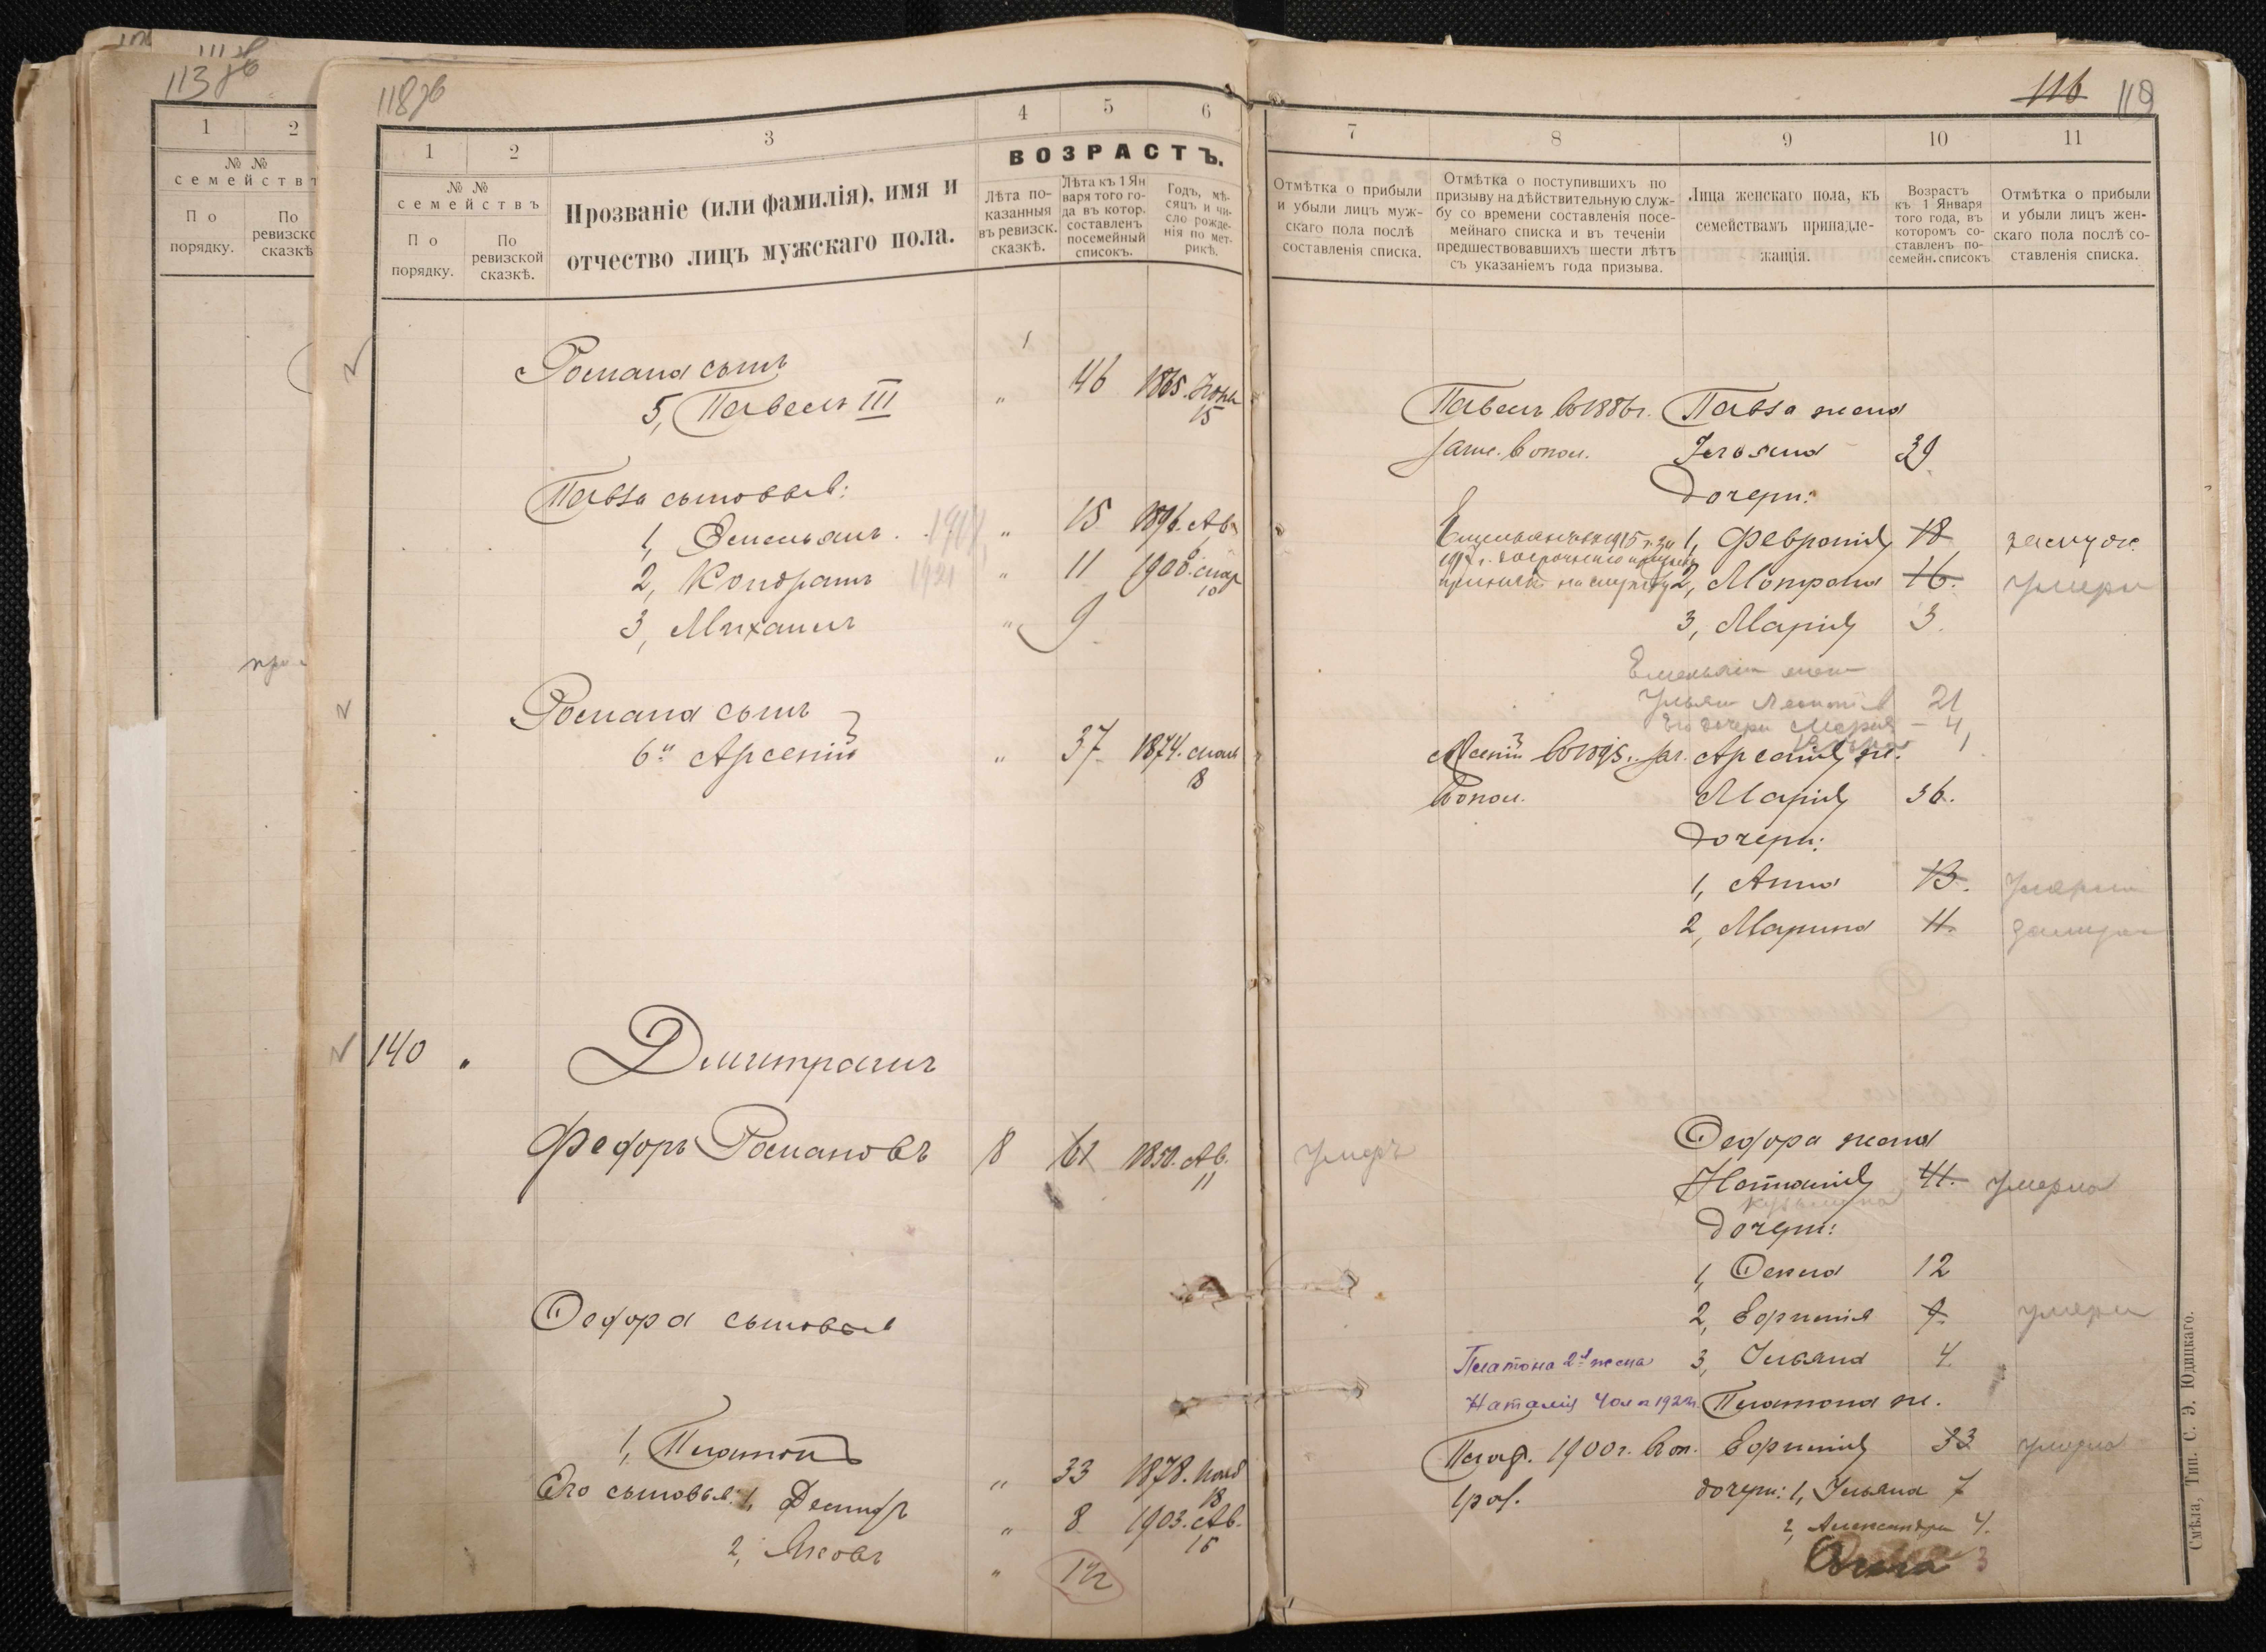 113 об
118 об
1
2
№ №
семействъ
По порядку.
По ревизской сказкѣ.
1
2
3
4
5
6
№ №
семействъ
По порядку.
По ревизской сказкѣ.
Прозваніе (или фамилія), имя и
отчество лицъ мужскаго пола.
ВОЗРАСТЪ.
Лѣта по-
казанныя
въ ревизск.
сказкѣ.
Лѣта къ 1 Ян
варя того го-
да въ котор.
составленъ
посемейный
списокъ.
Годъ, мѣ-
сяцъ и чи-
сло рожде-
нія по мет-
рикѣ.
Романа сынъ
5, Павелъ III " 46 1865. Іюня 15
Павла сыновья:
1, Емельянъ 1917 " 15 1896. Ав.
2, Кондратъ 1921 " 11 1900. мар 10
3, Михаилъ " 9
Романа сынъ
6й Арсеній " 37 1874. мая 8
140 "
Дмитрашъ
Федоръ Романовъ 8 61 1850. Ав. 11
Федора сыновья
1, Платонъ " 33 1878. Нояб 18
Его сыновья: 1, Демидъ " 8 1903. Ав. 15
2, Яковъ "
116 119
7
8
9
10
11
Отмѣтка о прибыли
и убыли лицъ муж-
скаго пола послѣ
составленія списка.
Отмѣтка о поступившихъ по
призыву на дѣйствительную служ-
бу со времени составленія посе-
мейнаго списка и въ теченіи
предшествовавшихъ шести лѣтъ
съ указаніемъ года призыва.
Лица женскаго пола, къ
семействамъ принадле-
жащія.
Возрастъ
къ 1 Января
того года, въ
которомъ со-
ставленъ по-
семейн. списокъ
Отмѣтка о прибыли
и убыли лицъ жен-
скаго пола послѣ со-
ставленія списка.
Павелъ въ 1886 г. Павла жена
зачис. в опол. Ульяна 39
Дочери:
1, Февронія 18 замуж.
принятъ на службу 2, Мотрона 16. умерла
3, Марія 3.
Емельяна жена
Ульяна Леонтіев 21
Его дочери Мария - 4
Арсеній въ 1895 г. за. Арсенія ж.
в опол. Марія 36.
Дочери:
1, Анна 13. умерла
2, Марина 11. замужем
умеръ Федора жена
Наталія 41. умерла
Кузьминова
Дочери:
1, Фекла 12
2, Евфимія 9. умерла
Платона 2я жена 3, Ульяна 4
Наталія 40 л в 1922 г. Платона ж.
Плат. 1900 г. в оп. Евфимія 33 умерла
1 раз. дочери: 1, Ульяна 7
2, Александра 4.
3
Смѣла, Тип. С. Э. Юдицкаго.